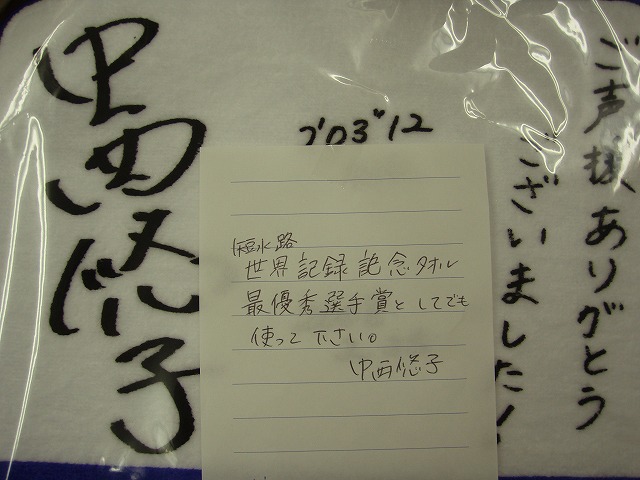 ご声援ありがとう
ございました!
2'03"12
中西悠子
短水路
世界記録記念タオル
最優秀選手賞としてでも
使って下さい。
中西悠子